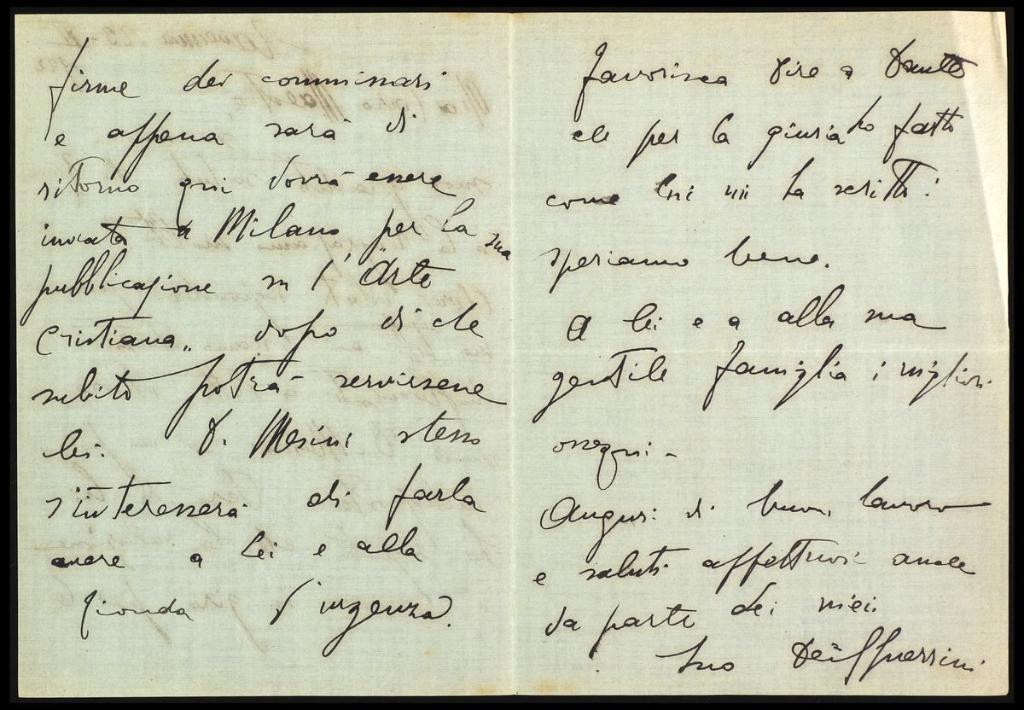 firme dei commissari
e appena sarà di
ritorno qui dovrà essere
inviata a Milano per la sua
pubblicazione su l'"Arte
Cristiana„ dopo di che
subito potrà servirsene
lei. D. Mesini stesso
s'interesserà di farla
avere a lei e alla
d'urgenza.
favorisca dire a Dante
che per la giuria ho fatto
come lui mi ha scritto:
speriamo bene.
A lei e a alla sua
gentile famiglia i migliori
ossequi -
Auguri di buon lavoro
e saluti affettuosi anche
da parte dei miei
Suo Guerrini